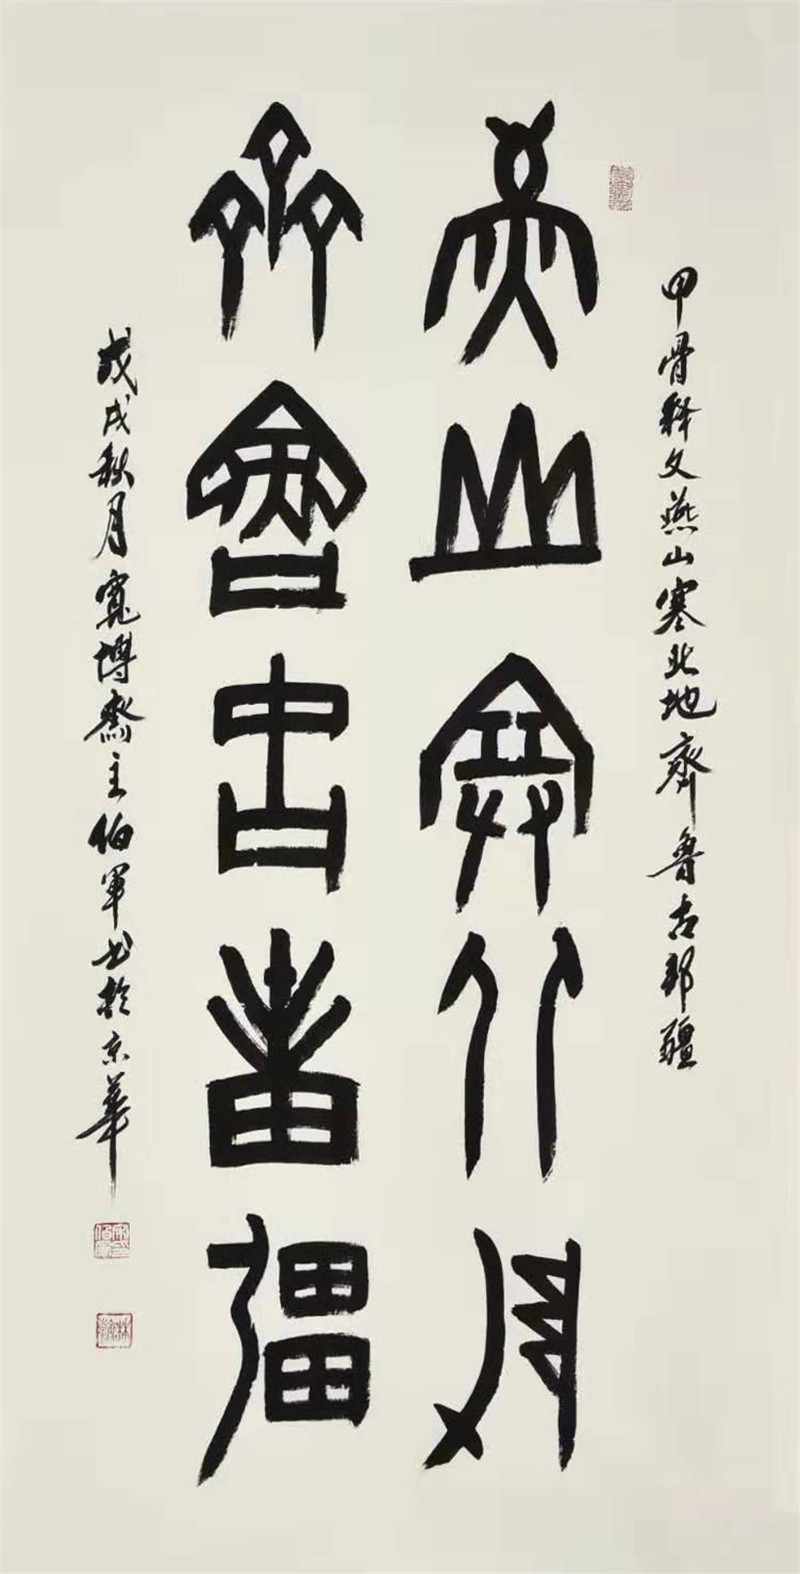 甲骨释文燕山塞北地齊魯古邦疆
燕山塞北地
齊魯古邦疆
戊戌秋月寬博齋主伯軍书於京華